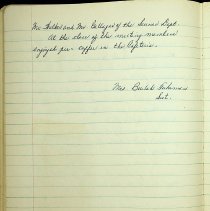 Mr. and Mr. of the Science Dept.
At the close of the meeting members
enjoyed pie coffee in the
Mrs. Beulah
Sect.